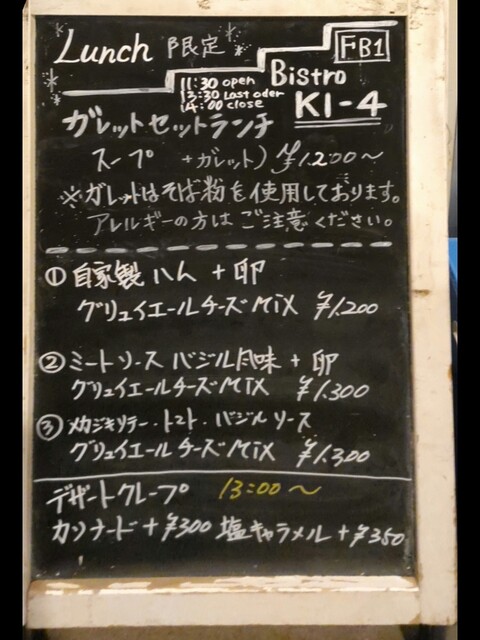 Lunch 限定
FB1
11:30 open
13:30 Last oder
14:00 close
Bistro
KI-4
ガレットセットランチ
スープ +ガレット) ¥1,200〜
※ガレットはそば粉を使用しております。
アレルギーの方はご注意ください。
① 自家製ハム + 卵
グリュイエールチーズMIX ¥1,200
② ミートソース バジル風味 + 卵
グリュイエールチーズMIX ¥1,300
③ メカジキソテー・トマト・バジルソース
グリュイエールチーズMIX ¥1,300
デザートクレープ 13:00〜
カソナード+¥300 塩キャラメル+¥350